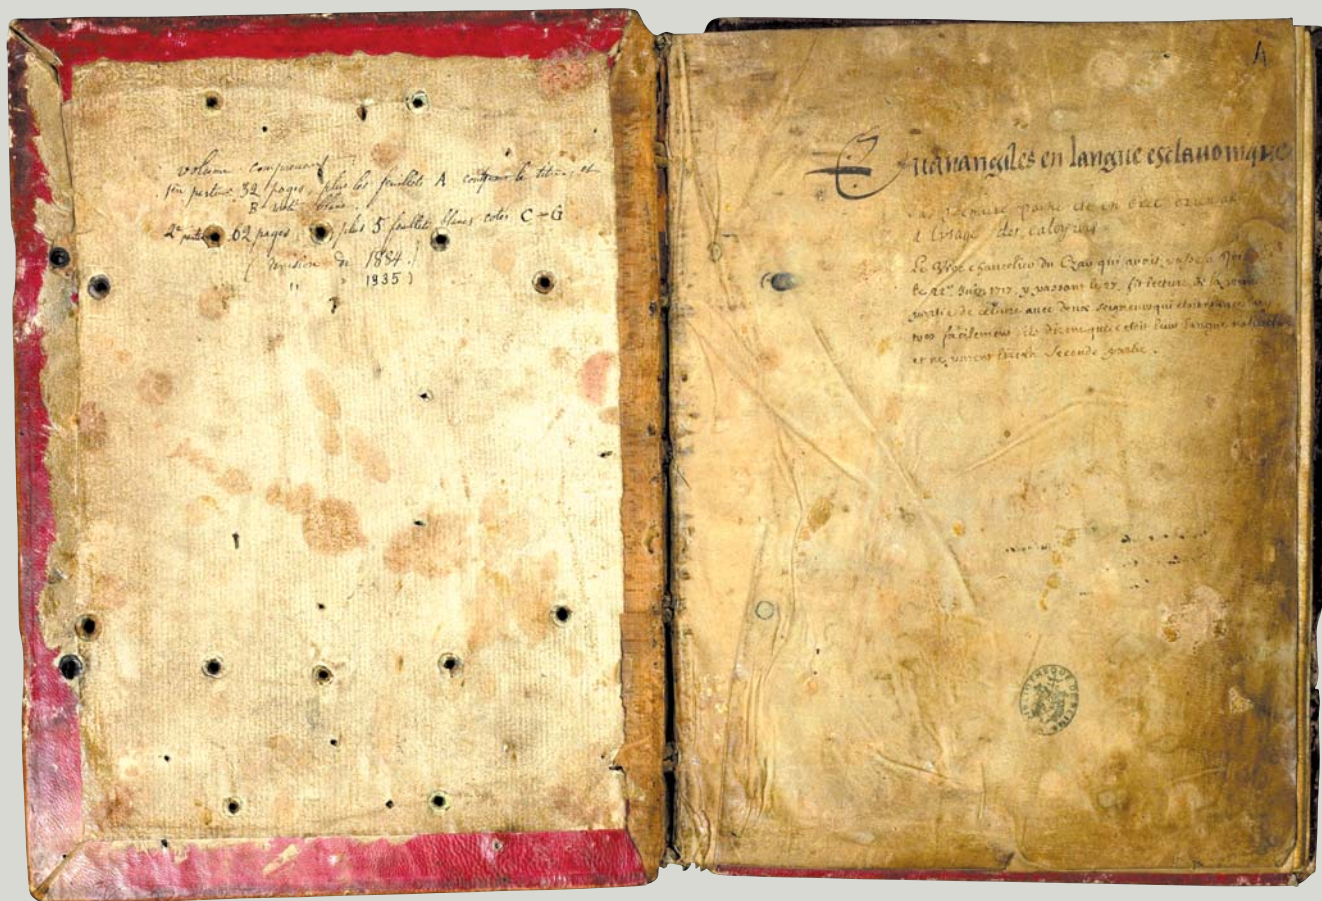 volume comprenant
1ère partie: 32 pages, plus les feuillets A contenant le titre, et
B resté blanc.
2e partie 62 pages, plus 5 feuillets blancs cotés C–G
( révision de 1884.)
" " 1935 )
A
Euanangiles en langue esclauonique
La première partie est en
a l'usage des caloyers
Le Vice chancelier du Czar qui avoit passé a
le 22 Juin 1717 y passant le 27, fit lecture de la première
partie de ce livre avec deux seigneurs qui
tres facilement ils dirent que c'etoit leur langue naturelle
et ne purent lire la seconde partie.
BIBLIOTHEQUE DE REIMS